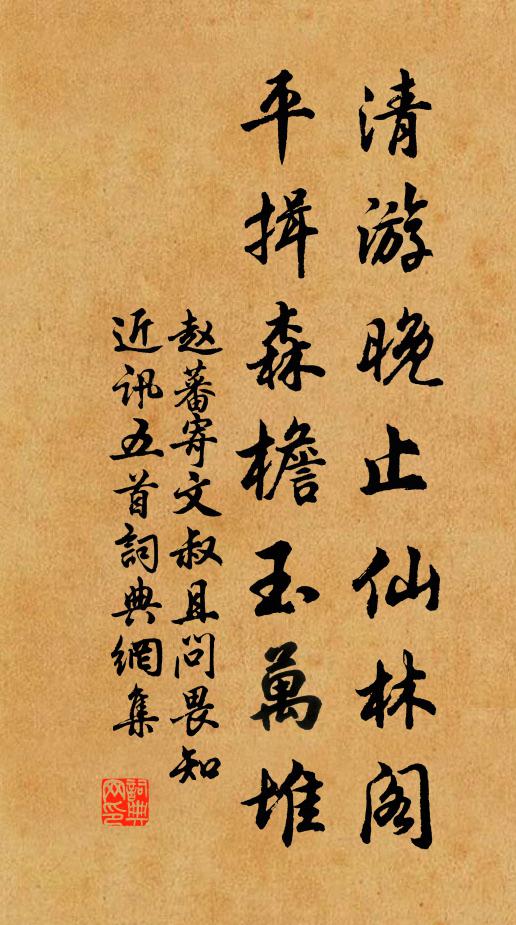 清游晚止仙林阁
平揖森檐玉萬堆
赵蕃寄文叔且問畏知
近讯五首詞典網集
詞典网印